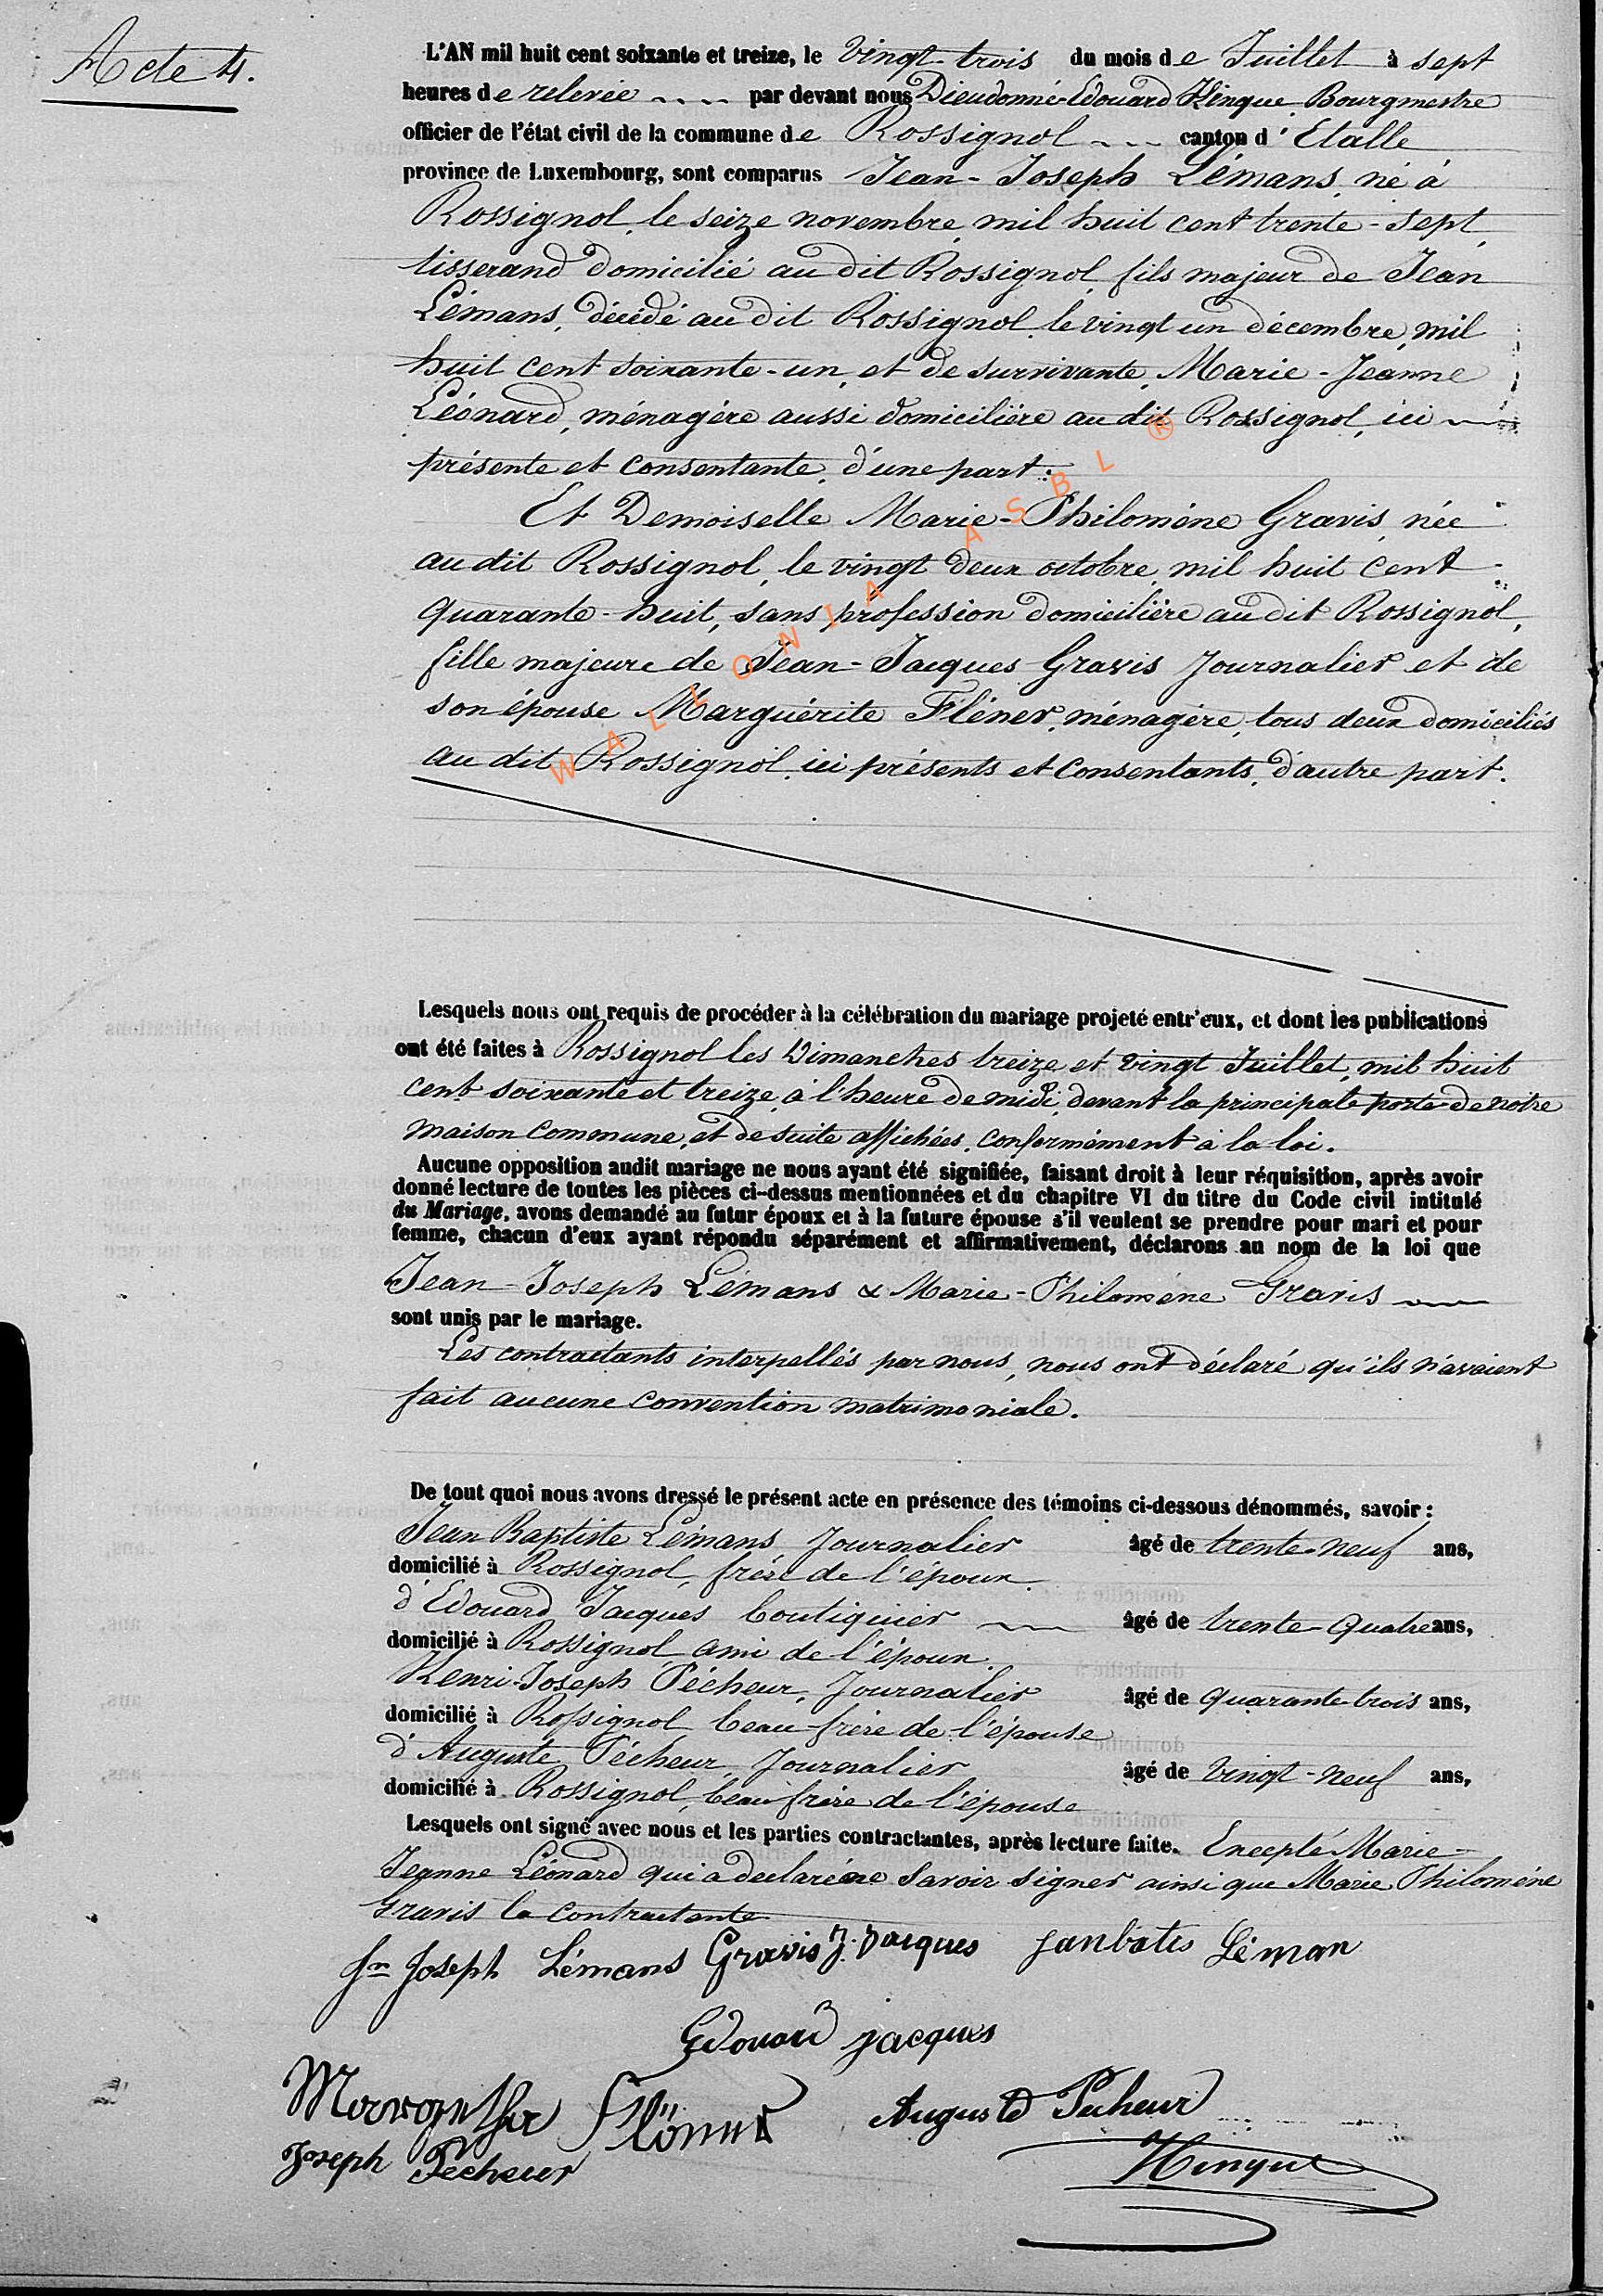 Acte 4.
L'AN mil huit cent soixante et treize, le vingt-trois du mois de Juillet à sept
heures de relevée par devant nous Dieudonné-Edouard Hinque Bourgmestre
officier de l'état civil de la commune de Rossignol canton d'Etalle
province de Luxembourg, sont comparus Jean-Joseph Lémans, né à
Rossignol, le seize novembre, mil huit cent trente-sept,
tisserand domicilié au dit Rossignol, fils majeur de Jean
Lémans, décédé au dit Rossignol, le vingt un décembre, mil
huit cent soixante-un, et de survivante, Marie-Jeanne
Léonard, ménagère aussi domicilière au dit Rossignol, ici
présente et consentante, d'une part:
Et Demoiselle Marie-Philomène Gravis, née
au dit Rossignol, le vingt deux octobre, mil huit cent
quarante-huit, sans profession domicilière au dit Rossignol,
fille majeure de Jean-Jacques Gravis Journalier et de
son épouse Marguérite Fléner, ménagère, tous deux domiciliés
au dit Rossignol, ici présents et consentants, d'autre part.
WALLONIA ASBL ®
Lesquels nous ont requis de procéder à la célébration du mariage projeté entr'eux, et dont les publications
ont été faites à Rossignol les Dimanches treize et vingt Juillet, mil huit
cent soixante et treize, à l'heure de midi, devant la principale porte de notre
maison commune, et de suite affichées, conformément à la loi.
Aucune opposition audit mariage ne nous ayant été signifiée, faisant droit à leur réquisition, après avoir
donné lecture de toutes les pièces ci-dessus mentionnées et du chapitre VI du titre du Code civil intitulé
du Mariage, avons demandé au futur époux et à la future épouse s'il veulent se prendre pour mari et pour
femme, chacun d'eux ayant répondu séparément et affirmativement, déclarons au nom de la loi que
Jean-Joseph Lémans & Marie-Philomène Gravis
sont unis par le mariage.
Les contractants interpellés par nous, nous ont déclaré qu'ils n'avaient
fait aucune convention matrimoniale.
De tout quoi nous avons dressé le présent acte en présence des témoins ci-dessous dénommés, savoir :
Jean Baptiste Lémans Journalier âgé de trente-neuf ans,
domicilié à Rossignol, frère de l'époux.
d'Edouard Jacques boutiquier âgé de trente-quatre ans,
domicilié à Rossignol, ami de l'époux.
Henri-Joseph Pécheur, Journalier âgé de quarante-trois ans,
domicilié à Rossignol beau-frère de l'épouse
d'Auguste Pécheur, Journalier âgé de vingt-neuf ans,
domicilié à Rossignol, beau frère de l'épouse
Lesquels ont signé avec nous et les parties contractantes, après lecture faite. Excepté Marie-
Jeanne Léonard qui a declaré ne savoir signer ainsi que Marie Philomène
Gravis la contractante
Jn Joseph Lémans Gravis J. Jacques Janbatis Léman
Edouard jacques
Margretha Flöner Auguste Pecheur
Joseph Pecheur Hinque